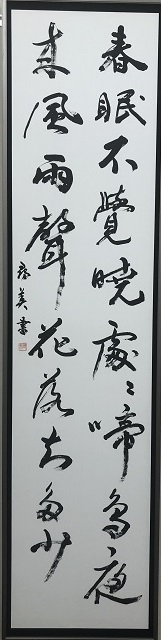 春眠不覺曉處〻啼鳥夜
来風雨聲花落知多少
美書